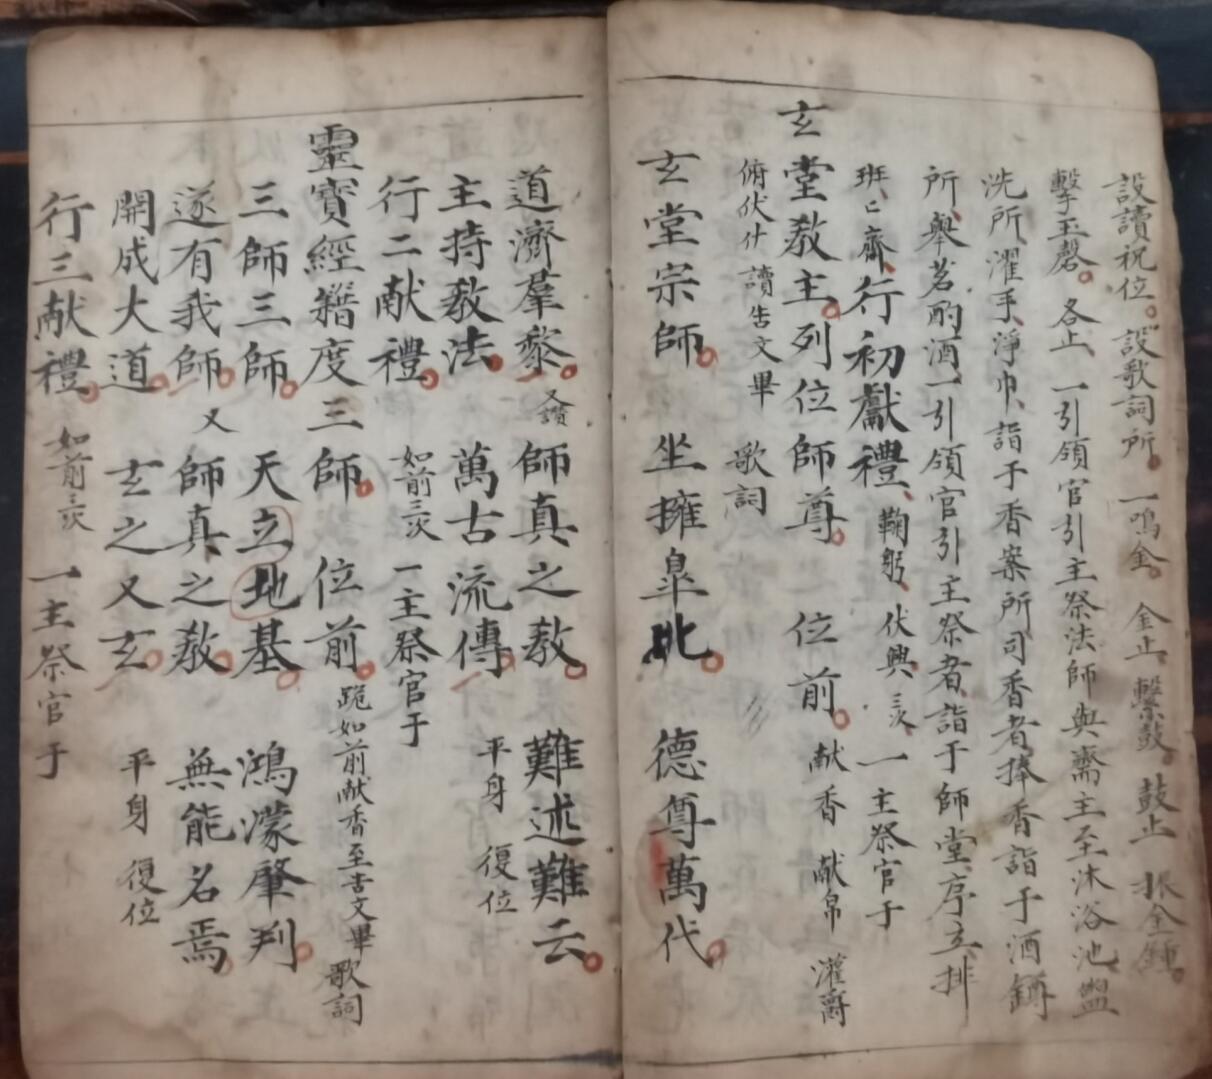 設讀祝位。設歌詞所。一鳴金。金止。繫鼓。鼓止 振金鍾。
擊玉磬。各止、一引領官引主祭法師與齋主至沐浴池、盥
洗所、濯手、淨巾、詣于香案所司香者捧香詣于酒罇
所、舉茗酌酒一引領官引主祭者、詣于師堂、序立、排
班、班齋、行初獻禮、鞠躬、伏興三次、一主祭官于
玄堂教主。列位師尊。位前。献香 献帛 灌爵
俯伏 讀告文畢 歌詞
玄堂宗師。坐擁皐比。德尊萬代。
道濟羣黎。又讚師真之教。難述難云。
主持教法。萬古流傳。平身 復位
行二献禮。如前三次 一主祭官于
靈寶經籍度三師。位前。跪如前献香至告文畢 歌詞
三師三師。天立地基。鴻濛肇判。
遂有我師。又師真之教。無能名焉。
開成大道。玄之又玄。平身 復位
行三献禮。如前三次 一主祭官于